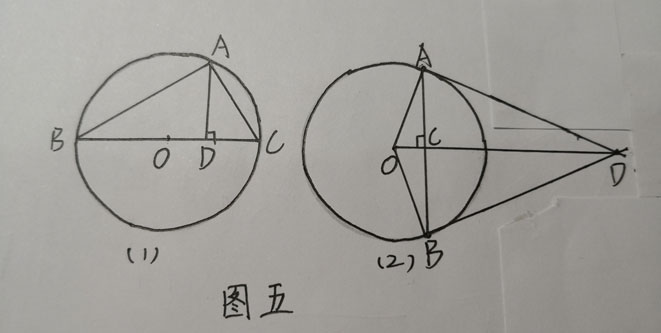 A
B
O
D
C
(1)
A
O
C
D
B
(2)
图五